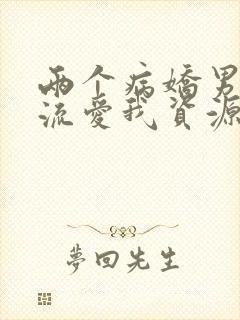 两个病嬌男
流愛我資源
夢回先生